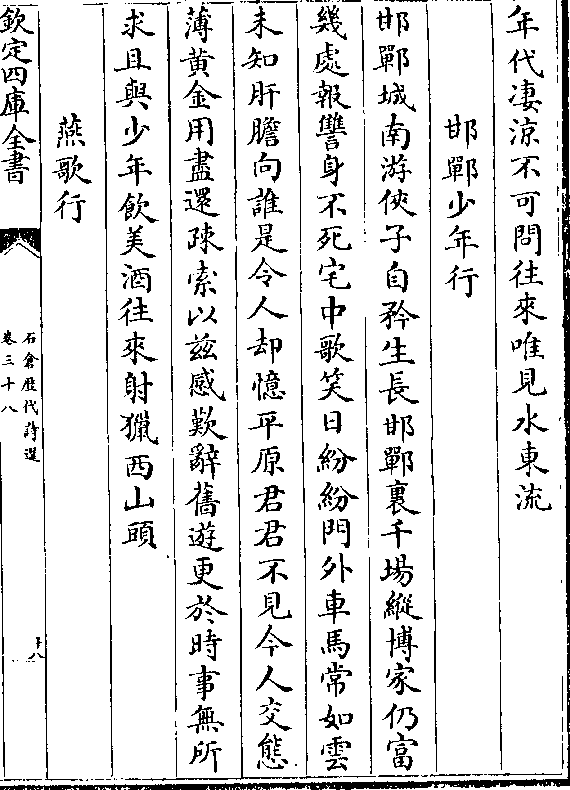 年代凄涼不可問往來唯見水東流
邯鄲少年行
邯鄲城南游俠子自矜生長邯鄲裏千場縱博家仍富
幾處報讐身不死宅中歌笑日紛紛門外車馬常如雲
未知肝膽向誰是令人却憶平原君君不見今人交態
薄黄金用盡還疎索以兹感歎辭舊遊更於時事無所
求且與少年飲美酒往來射獵西山頭
燕歌行
欽定四庫全書
石倉歴代詩選
卷三十八
十八